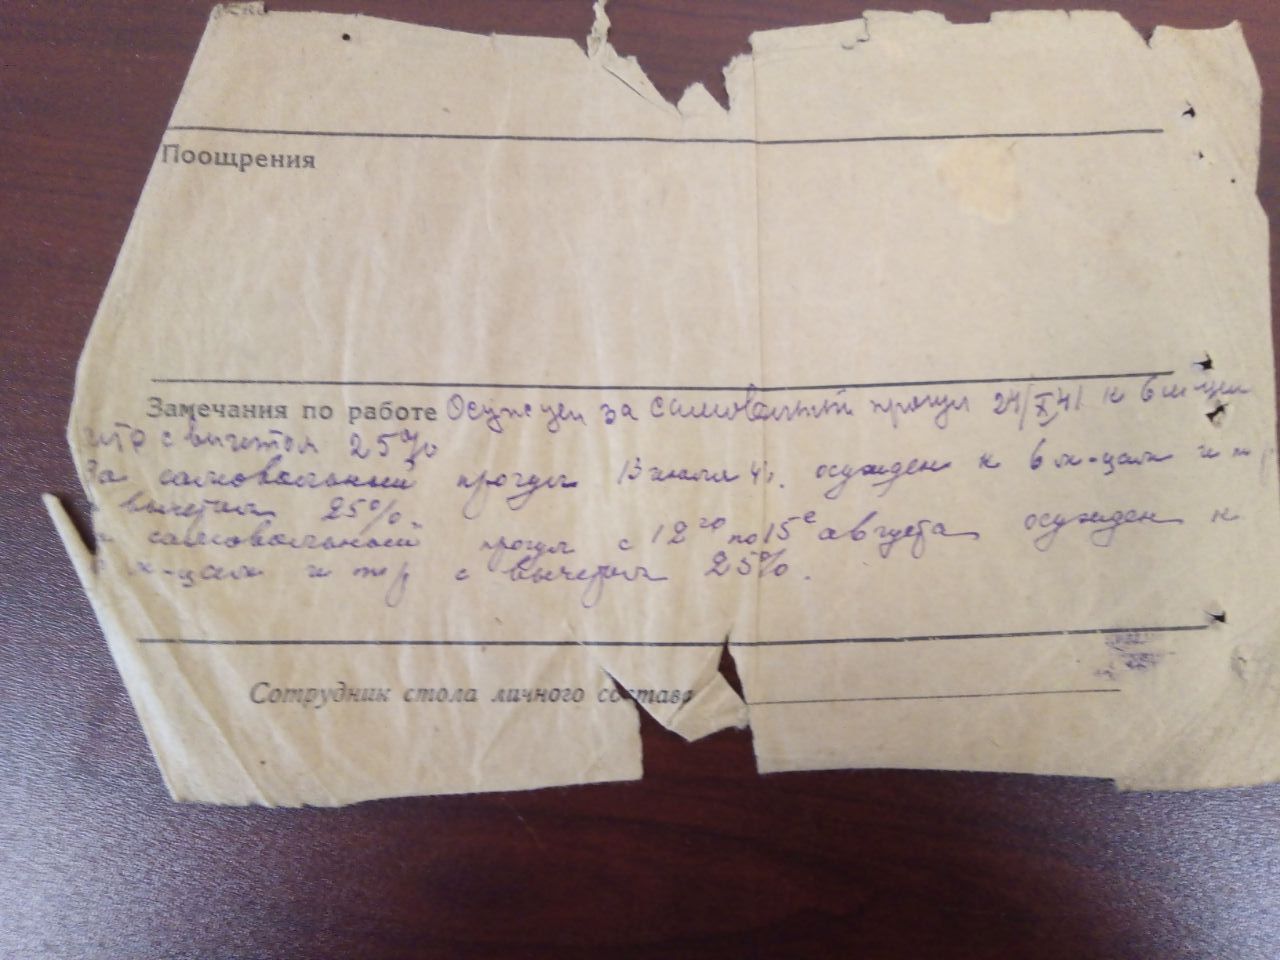 Поощрения
Замечания по работе Осужден за самовольный прогул 24/X 41 к 6 м-цам
ИТР с вычетом 25%
За самовольный прогул 13 июля 41. осужден к 6 м-цам и т р
с вычетом 25%.
самовольный прогул с 12го по 15е августа осужден к
м-цам и т р с вычетом 25%.
Сотрудник стола личного состава